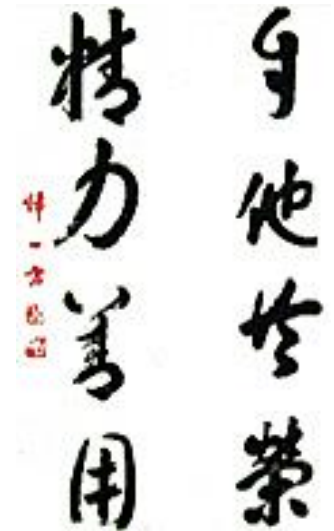 自他共榮
精力善用